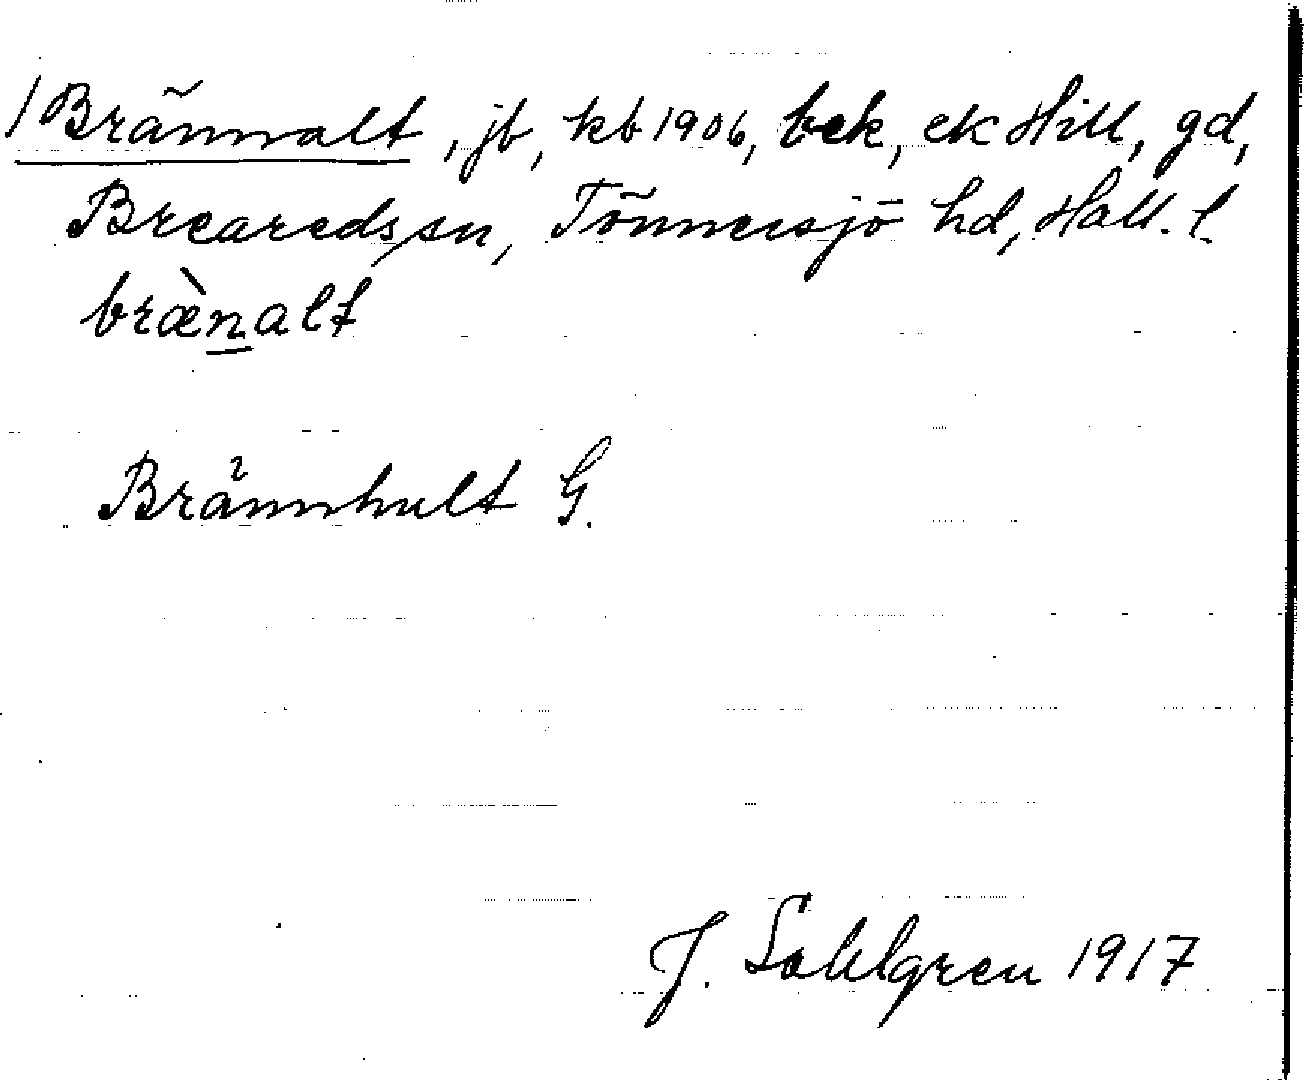 /Brännalt, jb, kb 1906, bek, ek Hill, gd,
Brearedssn, Tönnersjö hd, Hall. l.
brænalt
Brännhult G.
J. Sahlgren 1917